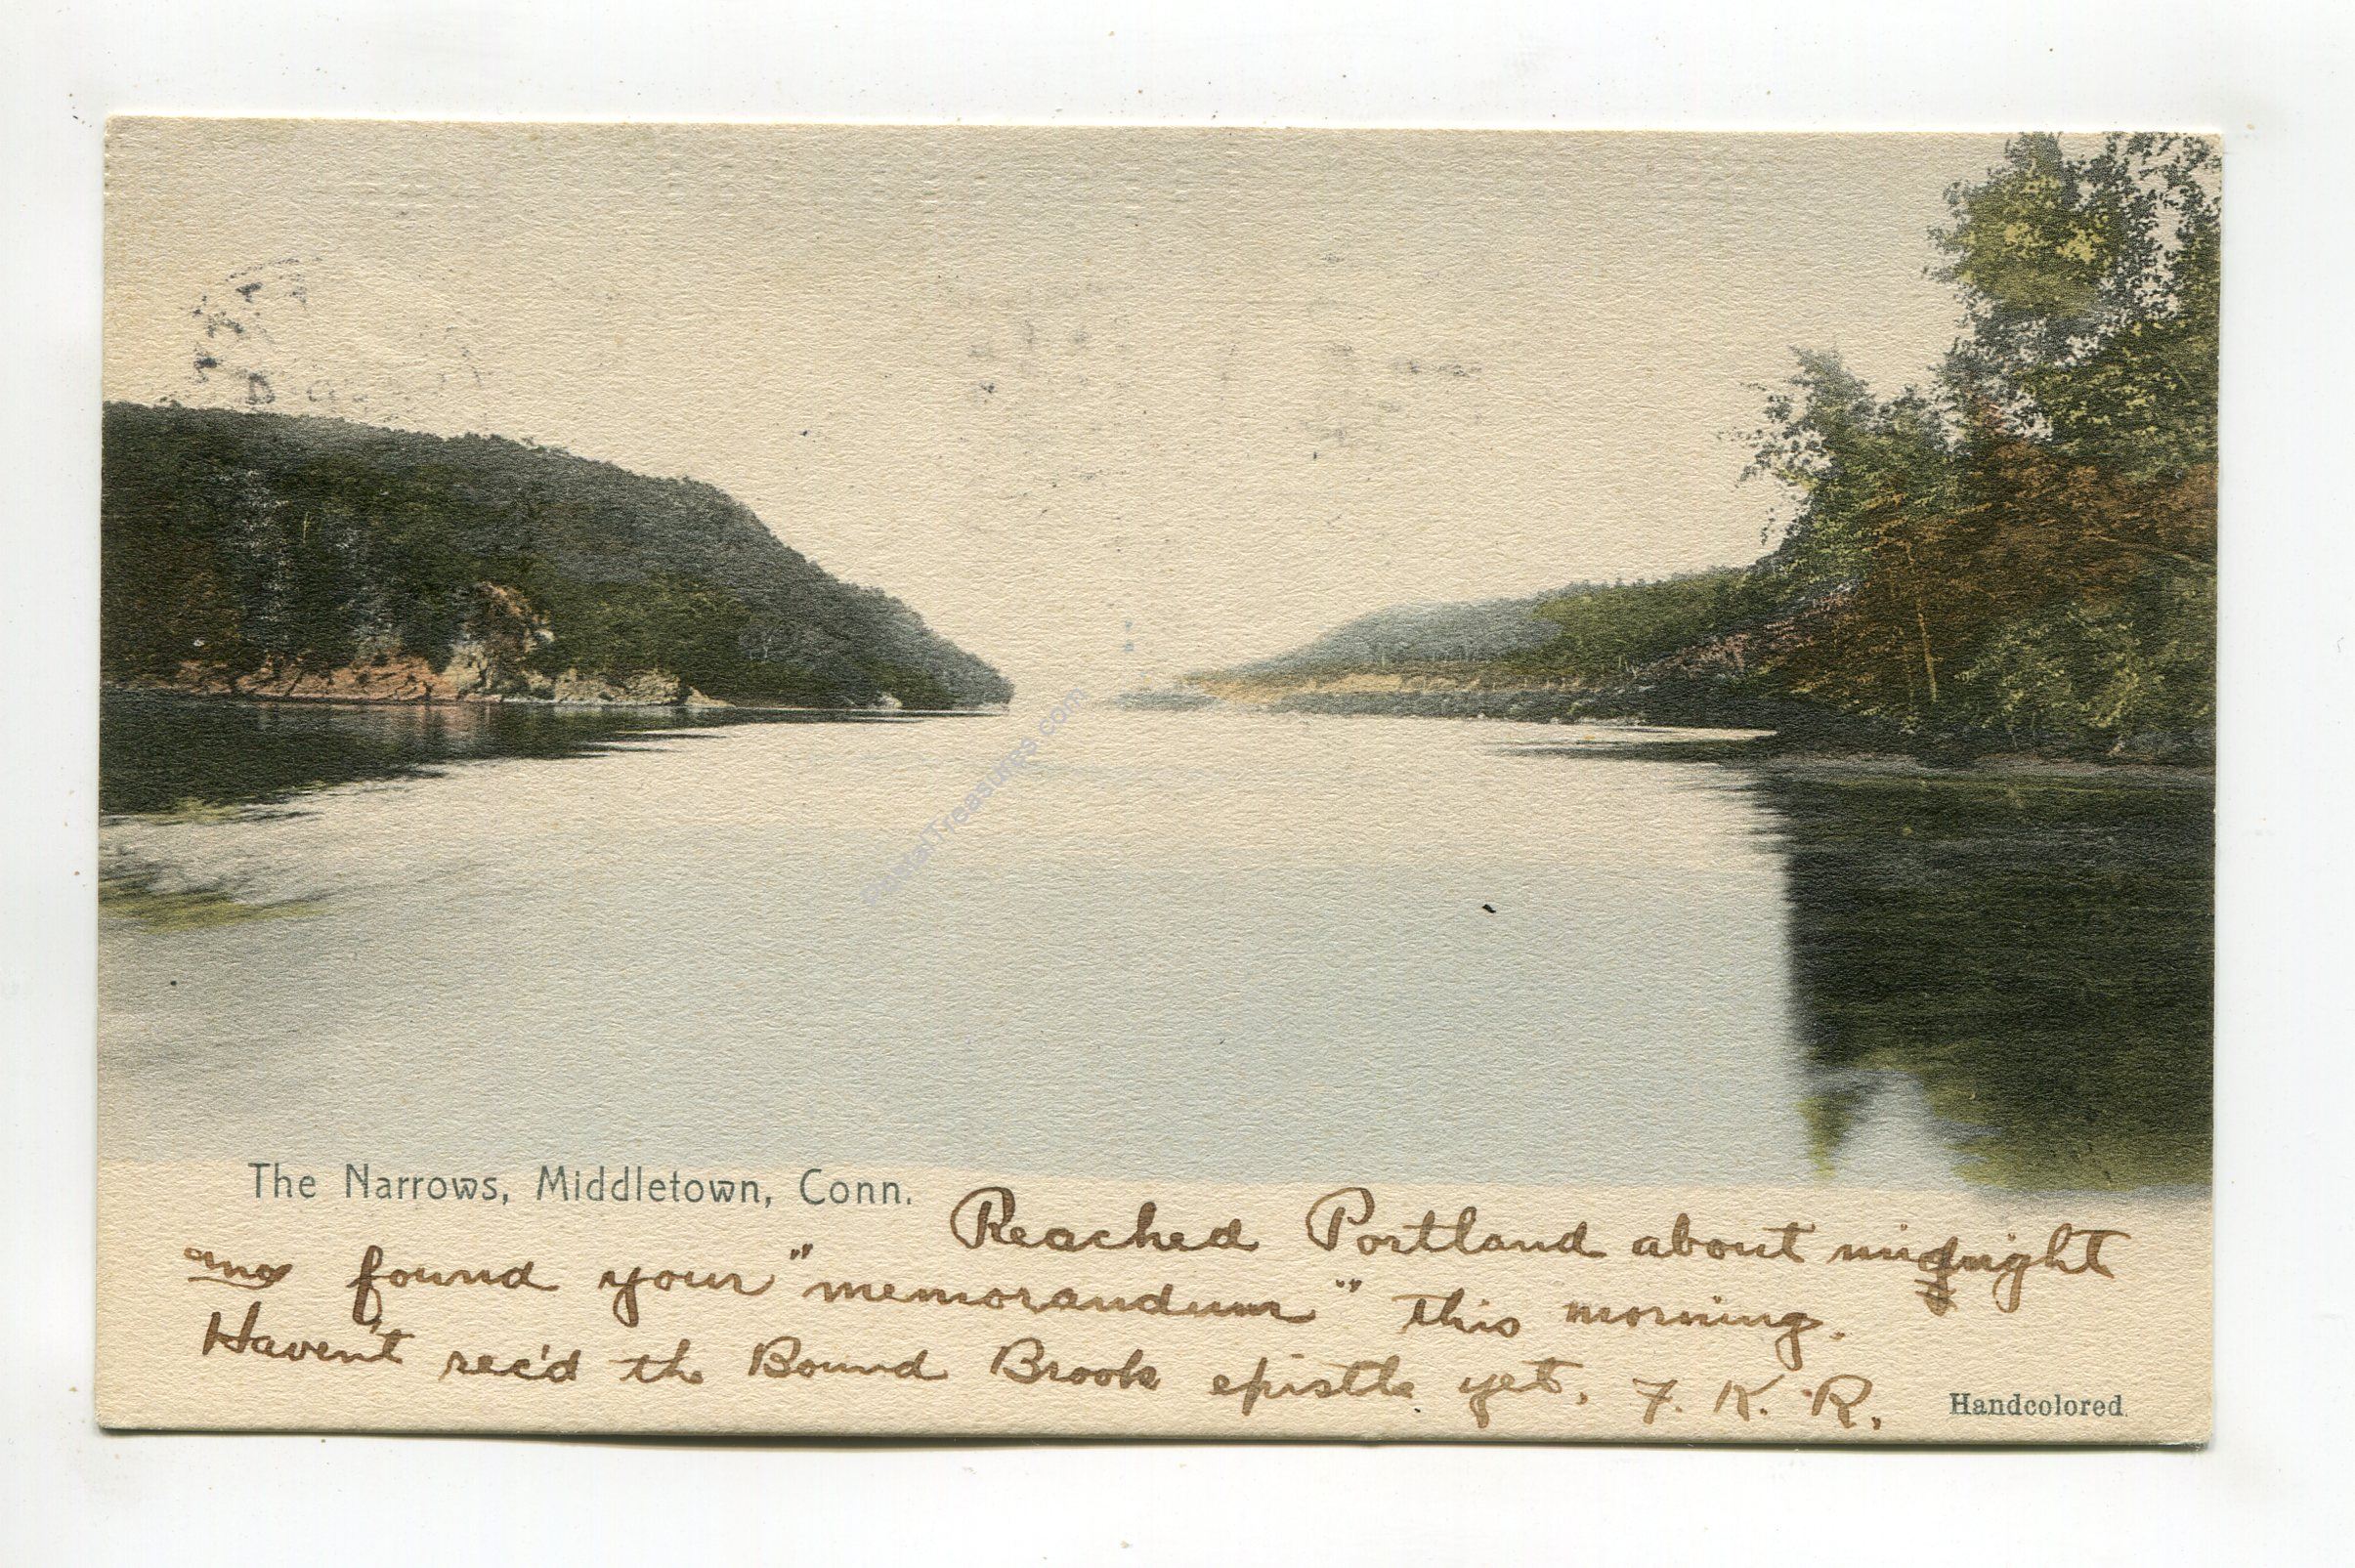 The Narrows, Middletown, Conn.
Reached Portland about midnight
and found your "memorandum" this morning.
Haven't rec'd the Bound Brook epistle yet. F. K. R.
Handcolored
PostalTreasures.com